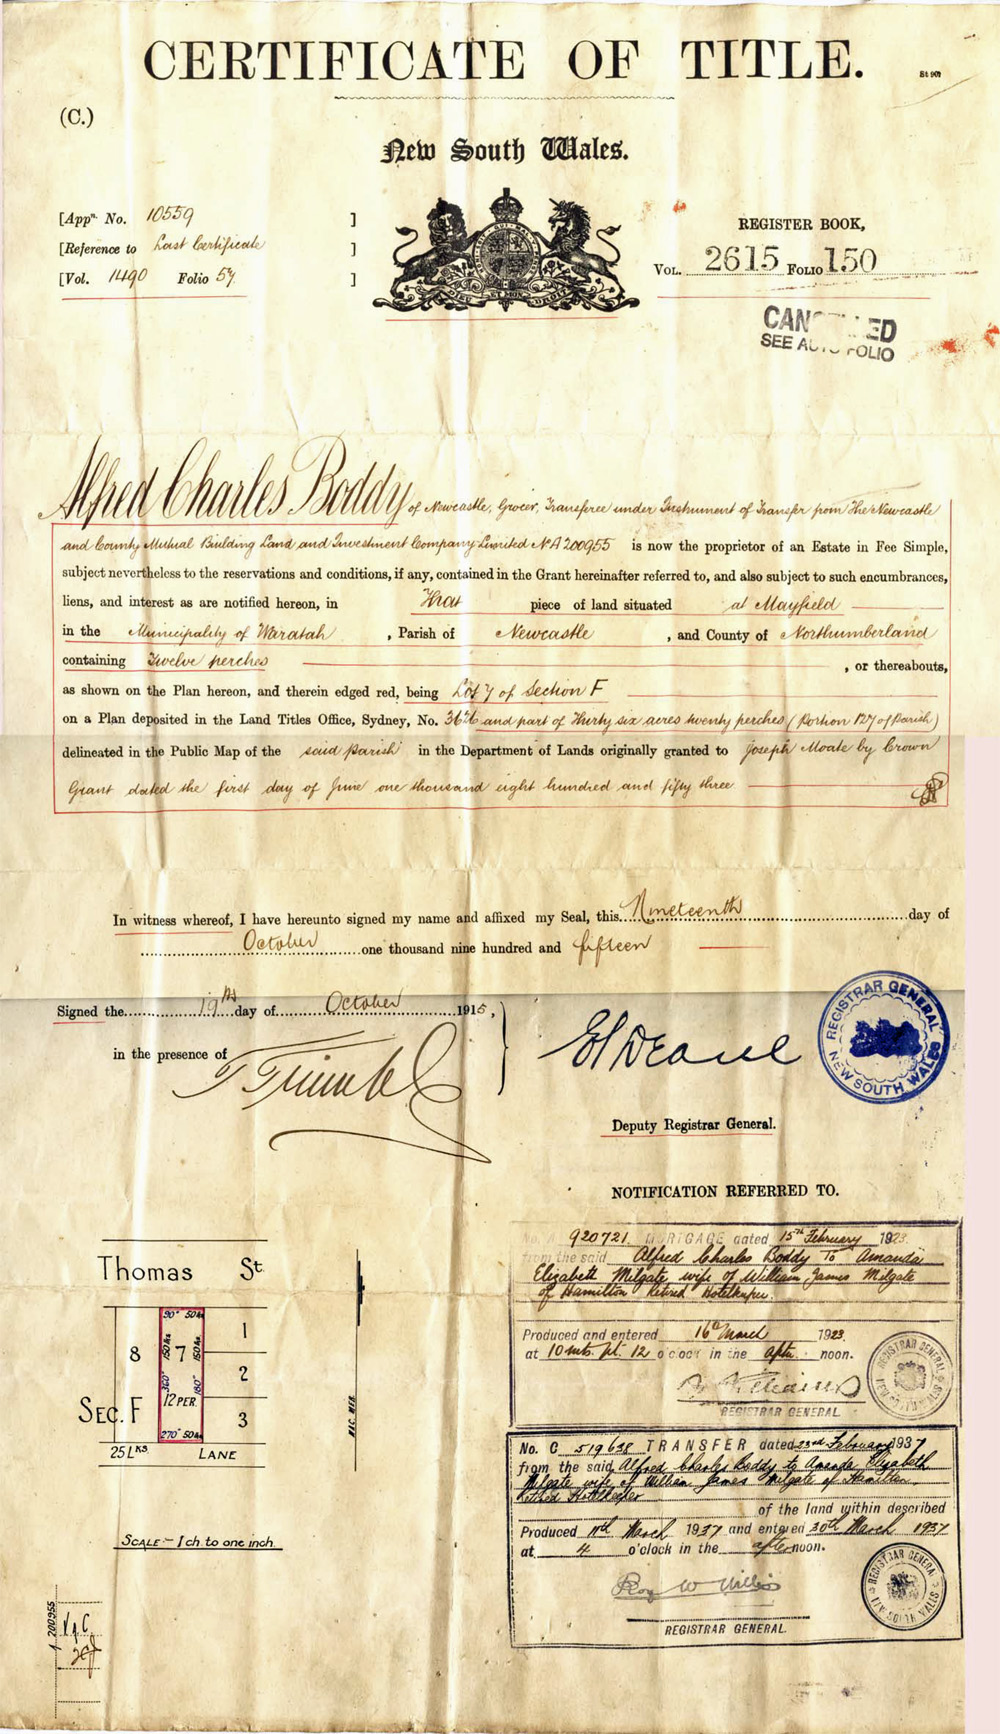 CERTIFICATE OF TITLE.
(C.)
New South Wales.
[Appn. No. 10559 ]
[Reference to Last Certificate ]
[Vol. 1490 Folio 57 ]
REGISTER BOOK,
VOL. 2615 FOLIO 150
CANCELLED
SEE AUTO FOLIO
DIEU ET MON DROIT
Alfred Charles Boddy of Newcastle, Grocer, Transferee under Instrument of Transfer from The Newcastle
and County Mutual Building Land and Investment Company Limited No A200955 is now the proprietor of an Estate in Fee Simple,
subject nevertheless to the reservations and conditions, if any, contained in the Grant hereinafter referred to, and also subject to such encumbrances,
liens, and interest as are notified hereon, in That piece of land situated at Mayfield
in the Municipality of Waratah , Parish of Newcastle , and County of Northumberland
containing Twelve perches , or thereabouts,
as shown on the Plan hereon, and therein edged red, being Lot 7 of Section F
on a Plan deposited in the Land Titles Office, Sydney, No. and part of Thirty six acres twenty perches (Portion 127 of Parish)
delineated in the Public Map of the said parish in the Department of Lands originally granted to Joseph Moate by Crown
Grant dated the first day of June one thousand eight hundred and fifty three
In witness whereof, I have hereunto signed my name and affixed my Seal, this Nineteenth day of
October one thousand nine hundred and fifteen
Signed the 19th day of October 1915,
in the presence of
Deputy Registrar General.
REGISTRAR GENERAL
NEW SOUTH WALES
NOTIFICATION REFERRED TO.
No. A 920721 MORTGAGE dated 15th February 1923
from the said Alfred Charles Boddy to Amanda
Elizabeth Milgate wife of William James Milgate
of Hamilton Retired Hotelkeeper.
Produced and entered 16th March 1923
at 10 mts. pt. 12 o'clock in the aftr. noon.
REGISTRAR GENERAL
REGISTRAR GENERAL
NEW SOUTH WALES
No. C 519638 TRANSFER dated 23rd February 1937
from the said Alfred Charles Boddy to Amanda Elizabeth
Milgate wife of William James Milgate of Hamilton
Retired Hotelkeeper
of the land within described
Produced 11th March 1937 and entered 30th March 1937
at 4 o'clock in the afternoon.
REGISTRAR GENERAL
REGISTRAR GENERAL
NEW SOUTH WALES
Thomas St.
90° 50 lks
150 lks
150 lks
360°
180°
8
7
1
2
3
12 PER.
SEC. F
270° 50 lks
25 LKS.
LANE
MAG. MER.
SCALE - 1 ch. to one inch
A 200955